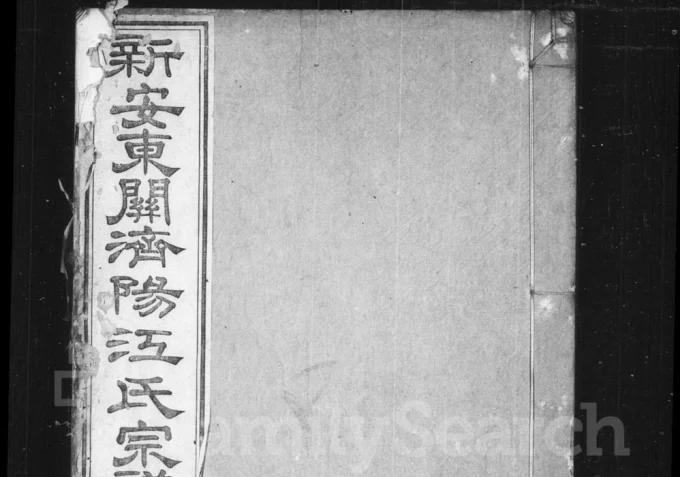 新安東關濟陽江氏宗
FamilySearch